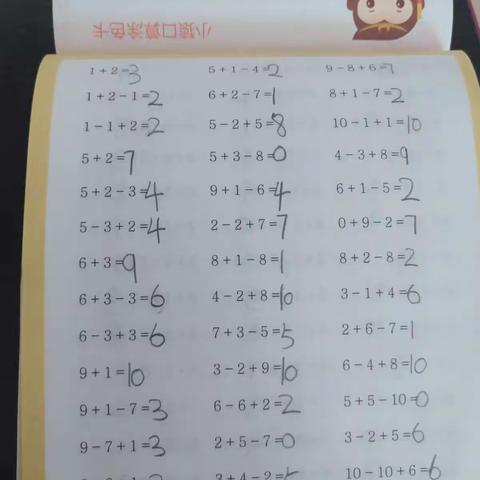 小猿口算涂色卡
1+2=3 5+1-4=2 9-8+6=7
1+2-1=2 6+2-7=1 8+1-7=2
1-1+2=2 5-2+5=8 10-1+1=10
5+2=7 5+3-8=0 4-3+8=9
5+2-3=4 9+1-6=4 6+1-5=2
5-3+2=4 2-2+7=7 0+9-2=7
6+3=9 8+1-8=1 8+2-8=2
6+3-3=6 4-2+8=10 3-1+4=6
6-3+3=6 7+3-5=5 2+6-7=1
9+1=10 3-2+9=10 6-4+8=10
9+1-7=3 6-6+2=2 5+5-10=0
9-7+1=3 2+5-7=0 3-2+5=6
3+4-2=5 10-10+6=6